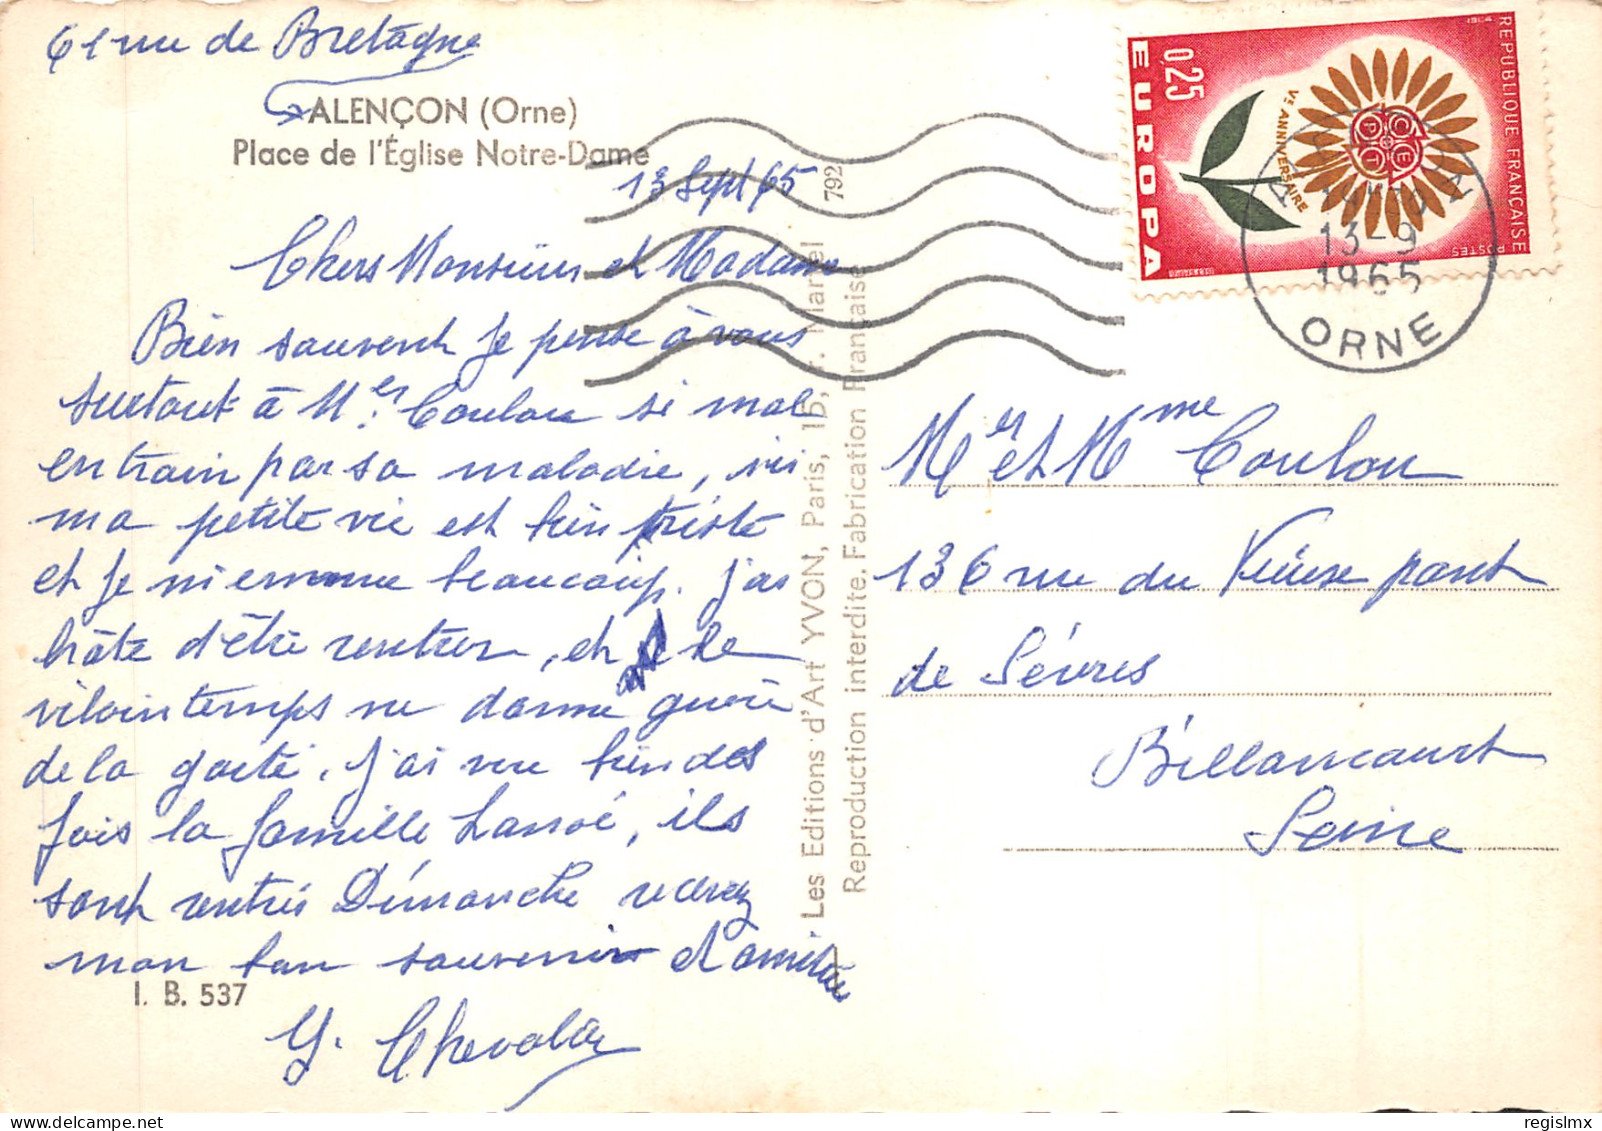 61 rue de Bretagne
ALENÇON (Orne)
Place de l'Église Notre-Dame
13 Sept 65
Chers Monsieur et Madame
Bien souvent je pense à vous
surtout à Mer. Coulon si mal
en train par sa maladie, ici
ma petite vie est bien triste
et je m'ennuie beaucoup. j'ai
hâte d'être rentrer, et le
vilain temps ne donne guère
de la gaité. j'ai vu bien des
fois la famille Lanoé, ils
sont rentrés Dimanche recevez
mon bon souvenir d'amitiés
I. B. 537
Y. Chevalier
792
Les Editions d'Art YVON, Paris, 15, F. Martel
Reproduction interdite. Fabrication Française
1964 REPUBLIQUE FRANÇAISE POSTES
0,25
EUROPA
Ve ANNIVERSAIRE
CEPT
13-9
1965
ORNE
Mer et Mme Coulon
136 rue du Vieux pont
de Sèvres
Billancourt
Seine
regislmx